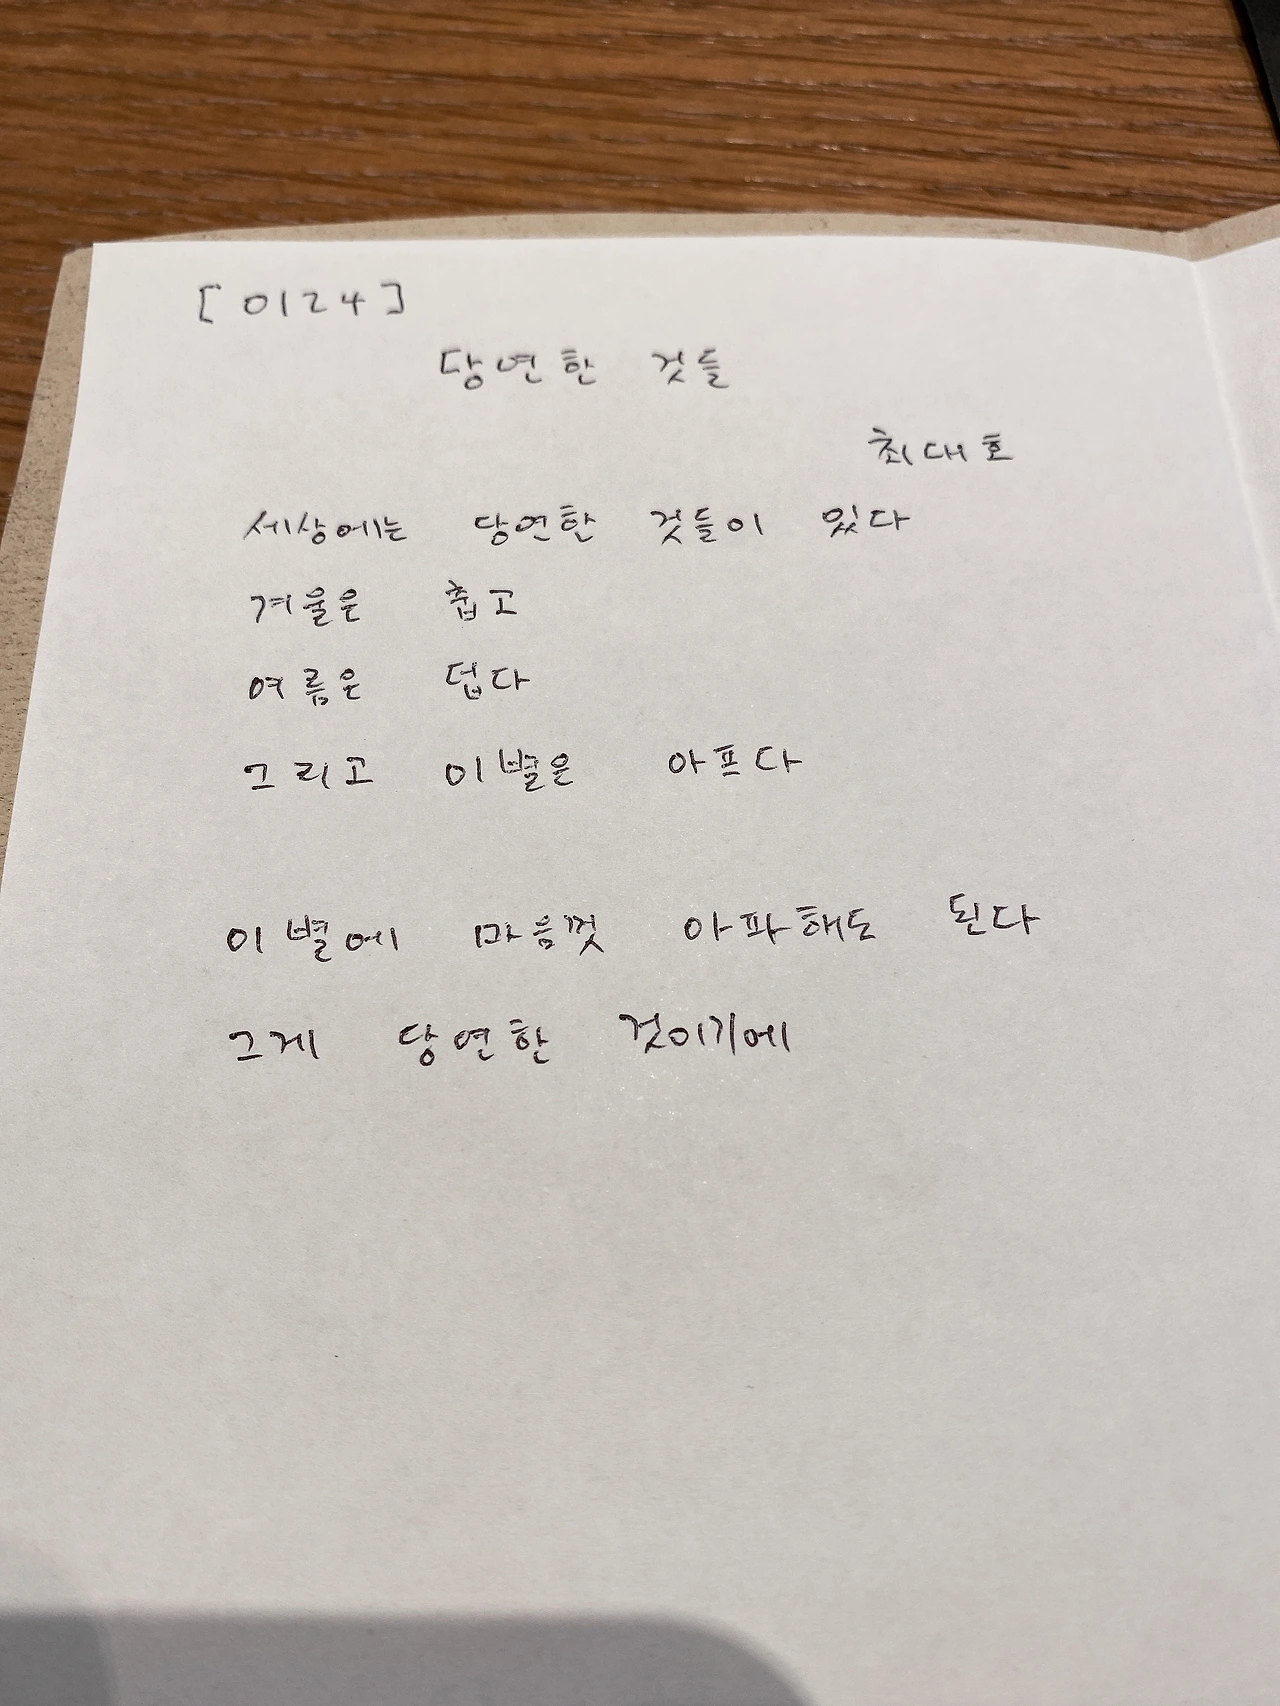 [0124]
당연한 것들
최대호
세상에는 당연한 것들이 있다
겨울은 춥고
여름은 덥다
그리고 이별은 아프다
이별에 마음껏 아파해도 된다
그게 당연한 것이기에